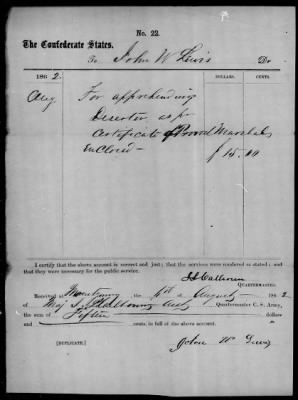 No. 22.
The Confederate States.
To John W Lewis Dr
DOLLARS. CENTS.
1862.
Aug For apprehending
Deserter, as pr
certificate of Provost Marshal
Enclosed— $ 15.00
I certify that the above account is correct and just; that the services were rendered as stated; and
that they were necessary for the public service.
Calhoun
QUARTERMASTER.
RECEIVED at Montgomery the 1st of August 1862
of Maj J. L. Calhoun Quartermaster C. S. Army,
the sum of Fifteen dollars
and cents, in full of the above account.
[DUPLICATE.] John W Lewis